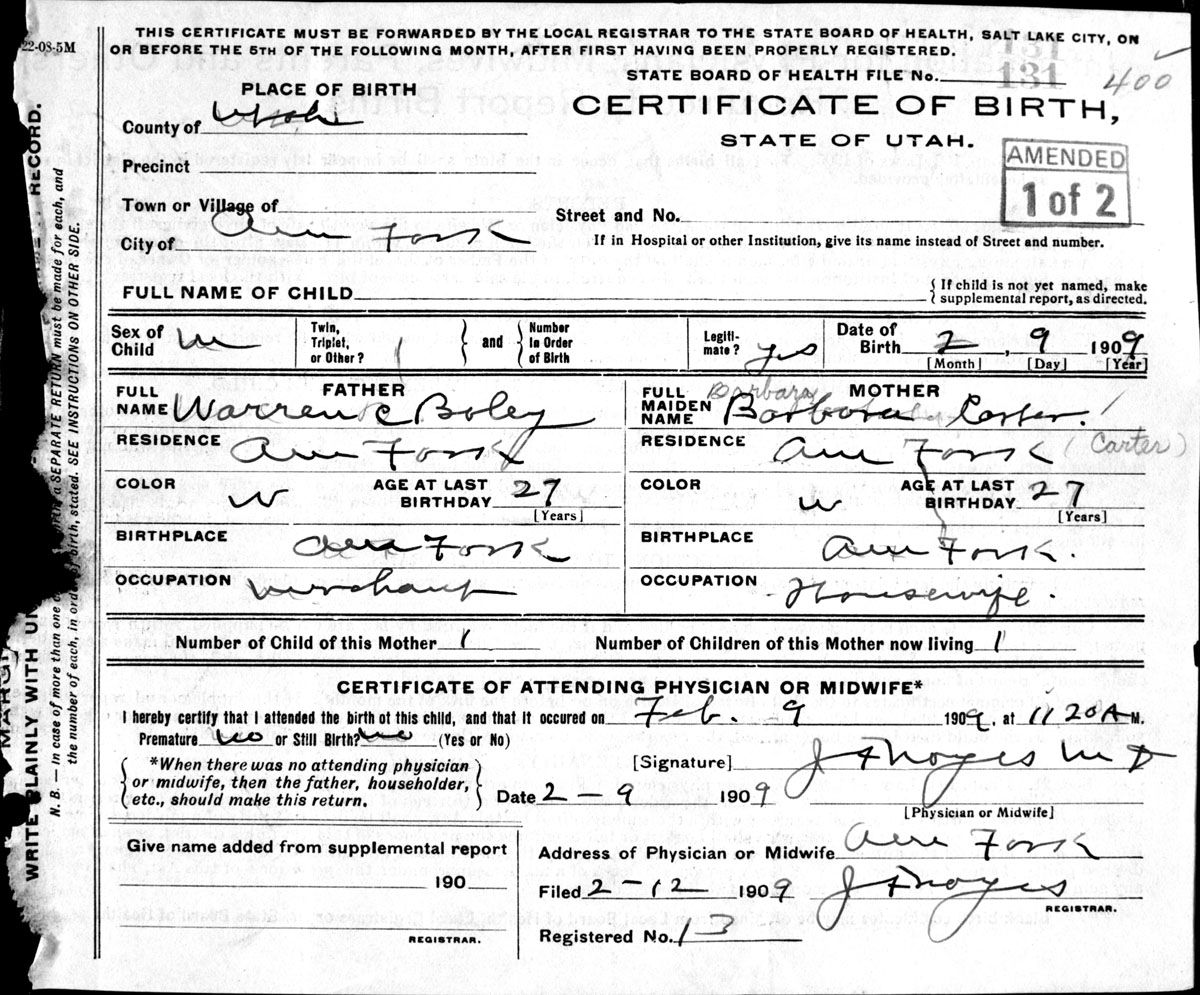 22-08-5M
THIS CERTIFICATE MUST BE FORWARDED BY THE LOCAL REGISTRAR TO THE STATE BOARD OF HEALTH, SALT LAKE CITY, ON
OR BEFORE THE 5TH OF THE FOLLOWING MONTH, AFTER FIRST HAVING BEEN PROPERLY REGISTERED.
STATE BOARD OF HEALTH FILE No. 131 400
PLACE OF BIRTH
CERTIFICATE OF BIRTH,
STATE OF UTAH.
AMENDED
1 of 2
County of
Precinct
Town or Village of
City of Am Fork
Street and No.
If in Hospital or other Institution, give its name instead of Street and number.
FULL NAME OF CHILD
{ If child is not yet named, make
supplemental report, as directed.
Sex of Child M
Twin, Triplet, or Other? } and { Number in Order of Birth
Legiti-mate? yes
Date of Birth 2, 9 1909
[Month] [Day] [Year]
FATHER
FULL NAME Warren E Boley
RESIDENCE Am Fork
COLOR W AGE AT LAST BIRTHDAY 27
[Years]
BIRTHPLACE Am Fork
OCCUPATION Merchant
MOTHER
Barbara
FULL MAIDEN NAME Barbara Carter.
(Carter)
RESIDENCE Am Fork
COLOR W AGE AT LAST BIRTHDAY 27
[Years]
BIRTHPLACE Am Fork.
OCCUPATION Housewife.
Number of Child of this Mother 1 Number of Children of this Mother now living 1
CERTIFICATE OF ATTENDING PHYSICIAN OR MIDWIFE*
I hereby certify that I attended the birth of this child, and that it occured on Feb. 9 1909, at 11 20 A M.
Premature No or Still Birth? No (Yes or No)
*When there was no attending physician
or midwife, then the father, householder,
etc., should make this return.
[Signature] J F Noyes M D
Date 2-9 1909
[Physician or Midwife]
Give name added from supplemental report
190
REGISTRAR.
Address of Physician or Midwife Am Fork
Filed 2-12 1909 J F Noyes
REGISTRAR.
Registered No. 13
WRITE PLAINLY WITH
RECORD.
N. B.—In case of more than one a SEPARATE RETURN must be made for each, and
the number of each, in order of birth, stated. SEE INSTRUCTIONS ON OTHER SIDE.